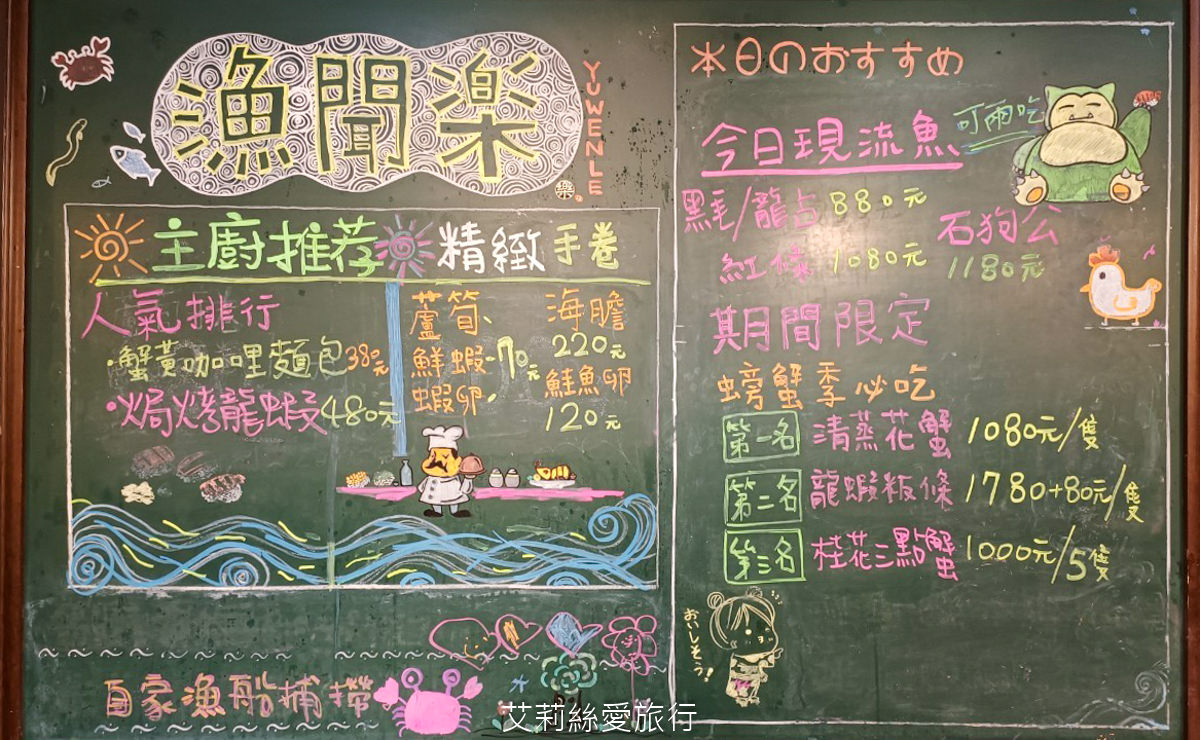 漁聞楽
YUWENLE
主廚推荐 精緻手卷
人氣排行
·蟹黃咖哩麵包380元
·焗烤龍蝦480元
蘆筍、
鮮蝦、70元
蝦卵、
海膽
220元
鮭魚卵
120元
自家漁船捕撈
本日のおすすめ
今日現流魚
叮兩吃
黑毛/龍占880元
紅條1080元
石狗公
1180元
期間限定
螃蟹季必吃
第一名 清蒸花蟹 1080元/隻
第二名 龍蝦粄條 1780+80元/隻
第三名 桂花三點蟹 1000元/5隻
おいしそう!
艾莉絲愛旅行